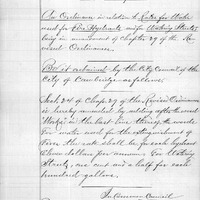 An Ordinance in relation to Rates for Water
used for Fire Hydrants and for Watering Streets,
being in amendment of Chapter 27 of the Re-
vised Ordinances.
Be it ordained by the City Council of the
City of Cambridge as follows:
Sect. 24 of Chapt. 27 of the Revised Ordinances
is hereby amended by adding after the word
"
for water used for the extinguishment of
fires the rate shall be for each hydrant
three dollars per annum. For Watering
Streets, one and a half for each
hundred gallons.
In Common Council